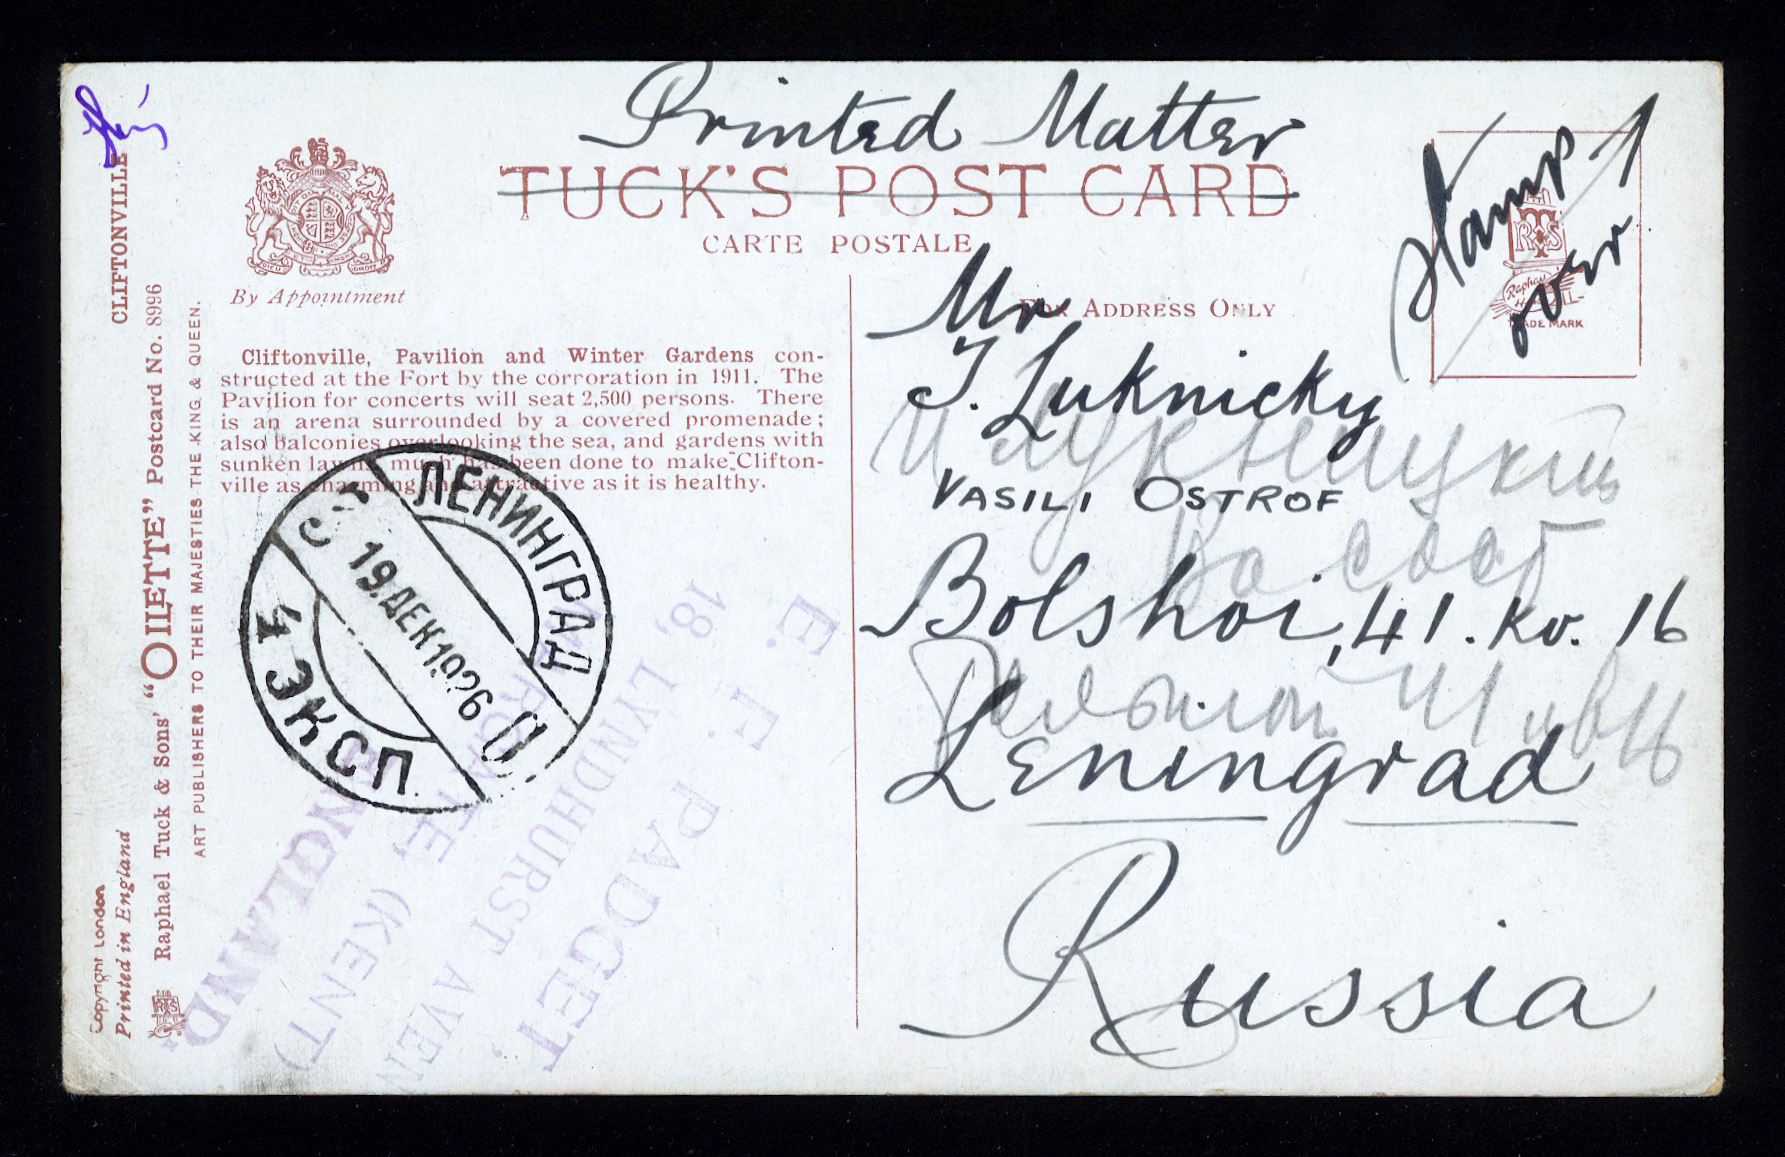 Printed Matter
TUCK'S POST CARD
CARTE POSTALE
Stamp
over
By Appointment
FOR ADDRESS ONLY
Cliftonville, Pavilion and Winter Gardens con-
structed at the Fort by the corroration in 1911. The
Pavilion for concerts will seat 2,500 persons. There
is an arena surrounded by a covered promenade;
also balconies overlooking the sea, and gardens with
sunken lawns, much has been done to make Clifton-
ville as charming and attractive as it is healthy.
Mr
J. Luknicky
VASILI OSTROF
Bolshoi, 41. Kv. 16
Leningrad
Russia
Лукницкий
41 кв 16
ЛЕНИНГРАД
19.ДЕК.1926
4 ЭКСП
E. F. PADGET,
18, LYNDHURST AVEN
MARGATE, (KENT)
ENGLAND
CLIFTONVILLE
"OILETTE" Postcard No. 8996
Raphael Tuck & Sons'
ART PUBLISHERS TO THEIR MAJESTIES THE KING & QUEEN.
Copyright London
Printed in England
TRADE MARK